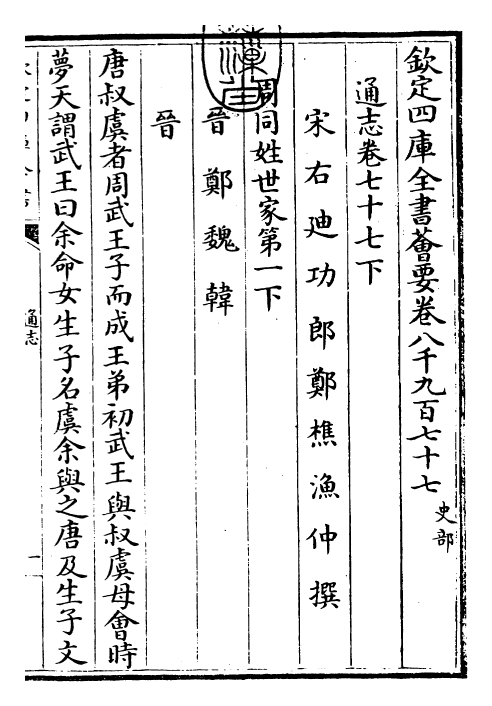 欽定四庫全書薈要卷八千九百七十七
史部
通志卷七十七下
宋右迪功郎鄭樵漁仲撰
周同姓世家第一下
晉鄭魏韓
晉
唐叔虞者周武王子而成王弟初武王與叔虞母會時
夢天謂武王曰余命女生子名虞余與之唐及生子文
通志
一